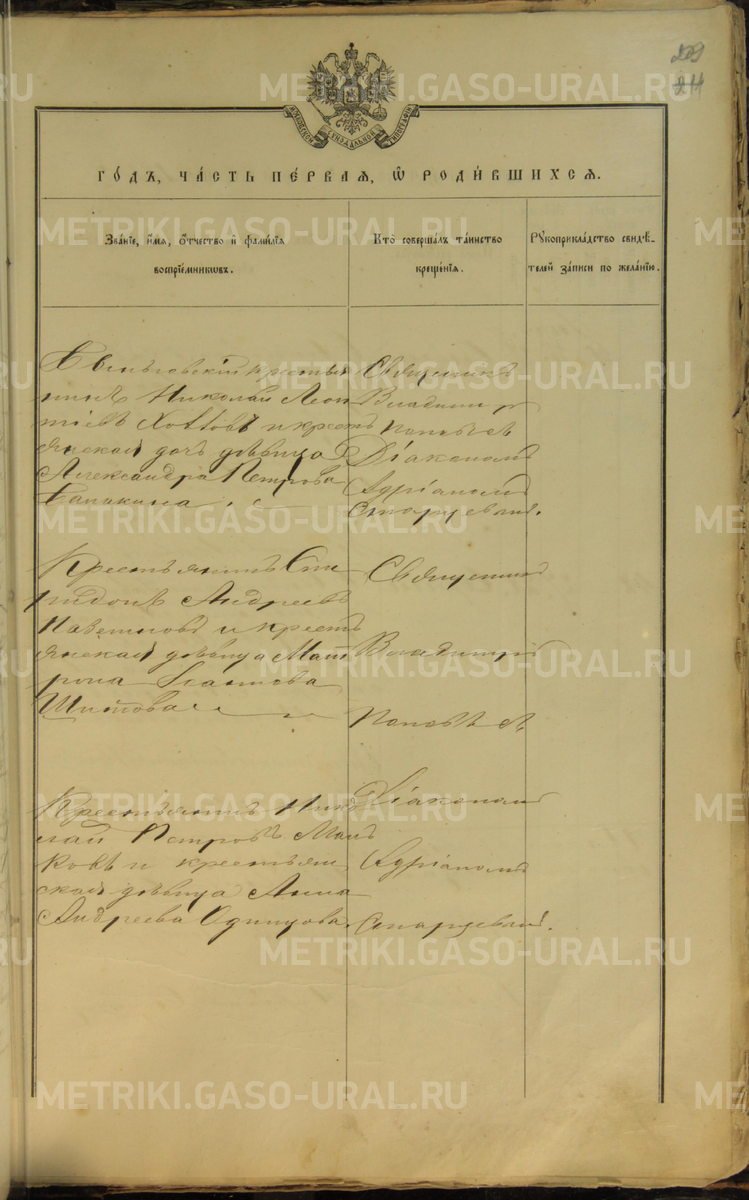 209
МОСКОВСКОЙ СУНОДАЛЬНОЙ ТИПОГРАФІИ
ГОДЪ, ЧАСТЬ ПЕРВАЯ, Ѡ РОДИВШИХСЯ.
Званіе, имя, отчество и фамилія
воспріемниковъ.
Кто совершалъ таинство
крещенія.
Рукоприкладство свидѣ-
телей записи по желанію.
крестья
нинъ Николай Леон
тіевъ и кресть
янская дочь дѣвица
Александра Петрова
Священникъ
Владимиръ
Поповъ съ
Діакономъ
Адріаномъ
Старцевымъ.
Крестьянинъ Спи
ридонъ Андреевъ
и кресть
янская дѣвица Мат
рона
Шитова
Священникъ
Владимиръ
Поповъ съ
Крестьянинъ Нико
лай Петровъ
и крестьян
ская дѣвица Анна
Андреева Одинцова.
Діакономъ
Адріаномъ
Старцевымъ.
METRIKI.GASO-URAL.RU